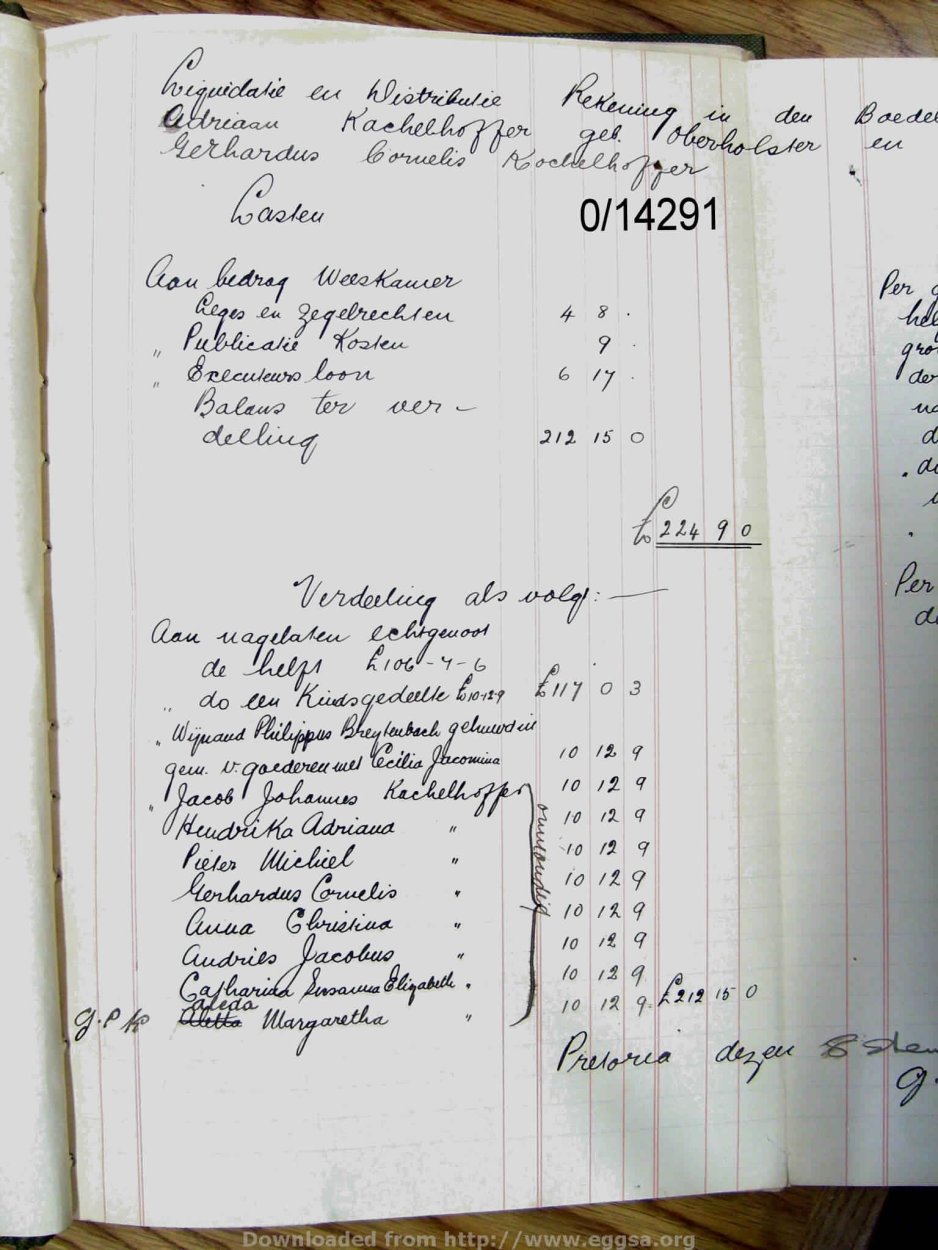 Liquidatie en Distributie Rekening in den Boedel
Adriaan Kachelhoffer geb. Oberholster en
Gerhardus Cornelis Kachelhoffer
Lasten
0/14291
Aan bedrag Weeskamer
Leges en zegelrechten 4 8 .
" Publicatie Kosten 9 .
" Executeurs loon 6 17 .
Balans ter ver-
delling 212 15 0
£224 9 0
Verdeeling als volgt: —
Aan nagelaten echtgenoot
de helft £106-7-6
" do een Kindsgedeelte £10-12-9 £117 0 3
" Wijnand Philippus Breytenbach gehuwd in
gem. v. goederen met Cecilia Jacomina 10 12 9
" Jacob Johannes Kachelhoffer 10 12 9
Hendrika Adriana " 10 12 9
Pieter Michiel " 10 12 9
Gerhardus Cornelis " 10 12 9
Anna Christina " 10 12 9
Andries Jacobus " 10 12 9
Catharina Susanna Elizabeth " 10 12 9
Aleda
Aletta Margaretha " 10 12 9 £212 15 0
onmondig
G.P.K
Pretoria dezen 8 sten
G.
Per
hel
gro
der
na
d
" di
Per
d
Downloaded from http://www.eggsa.org